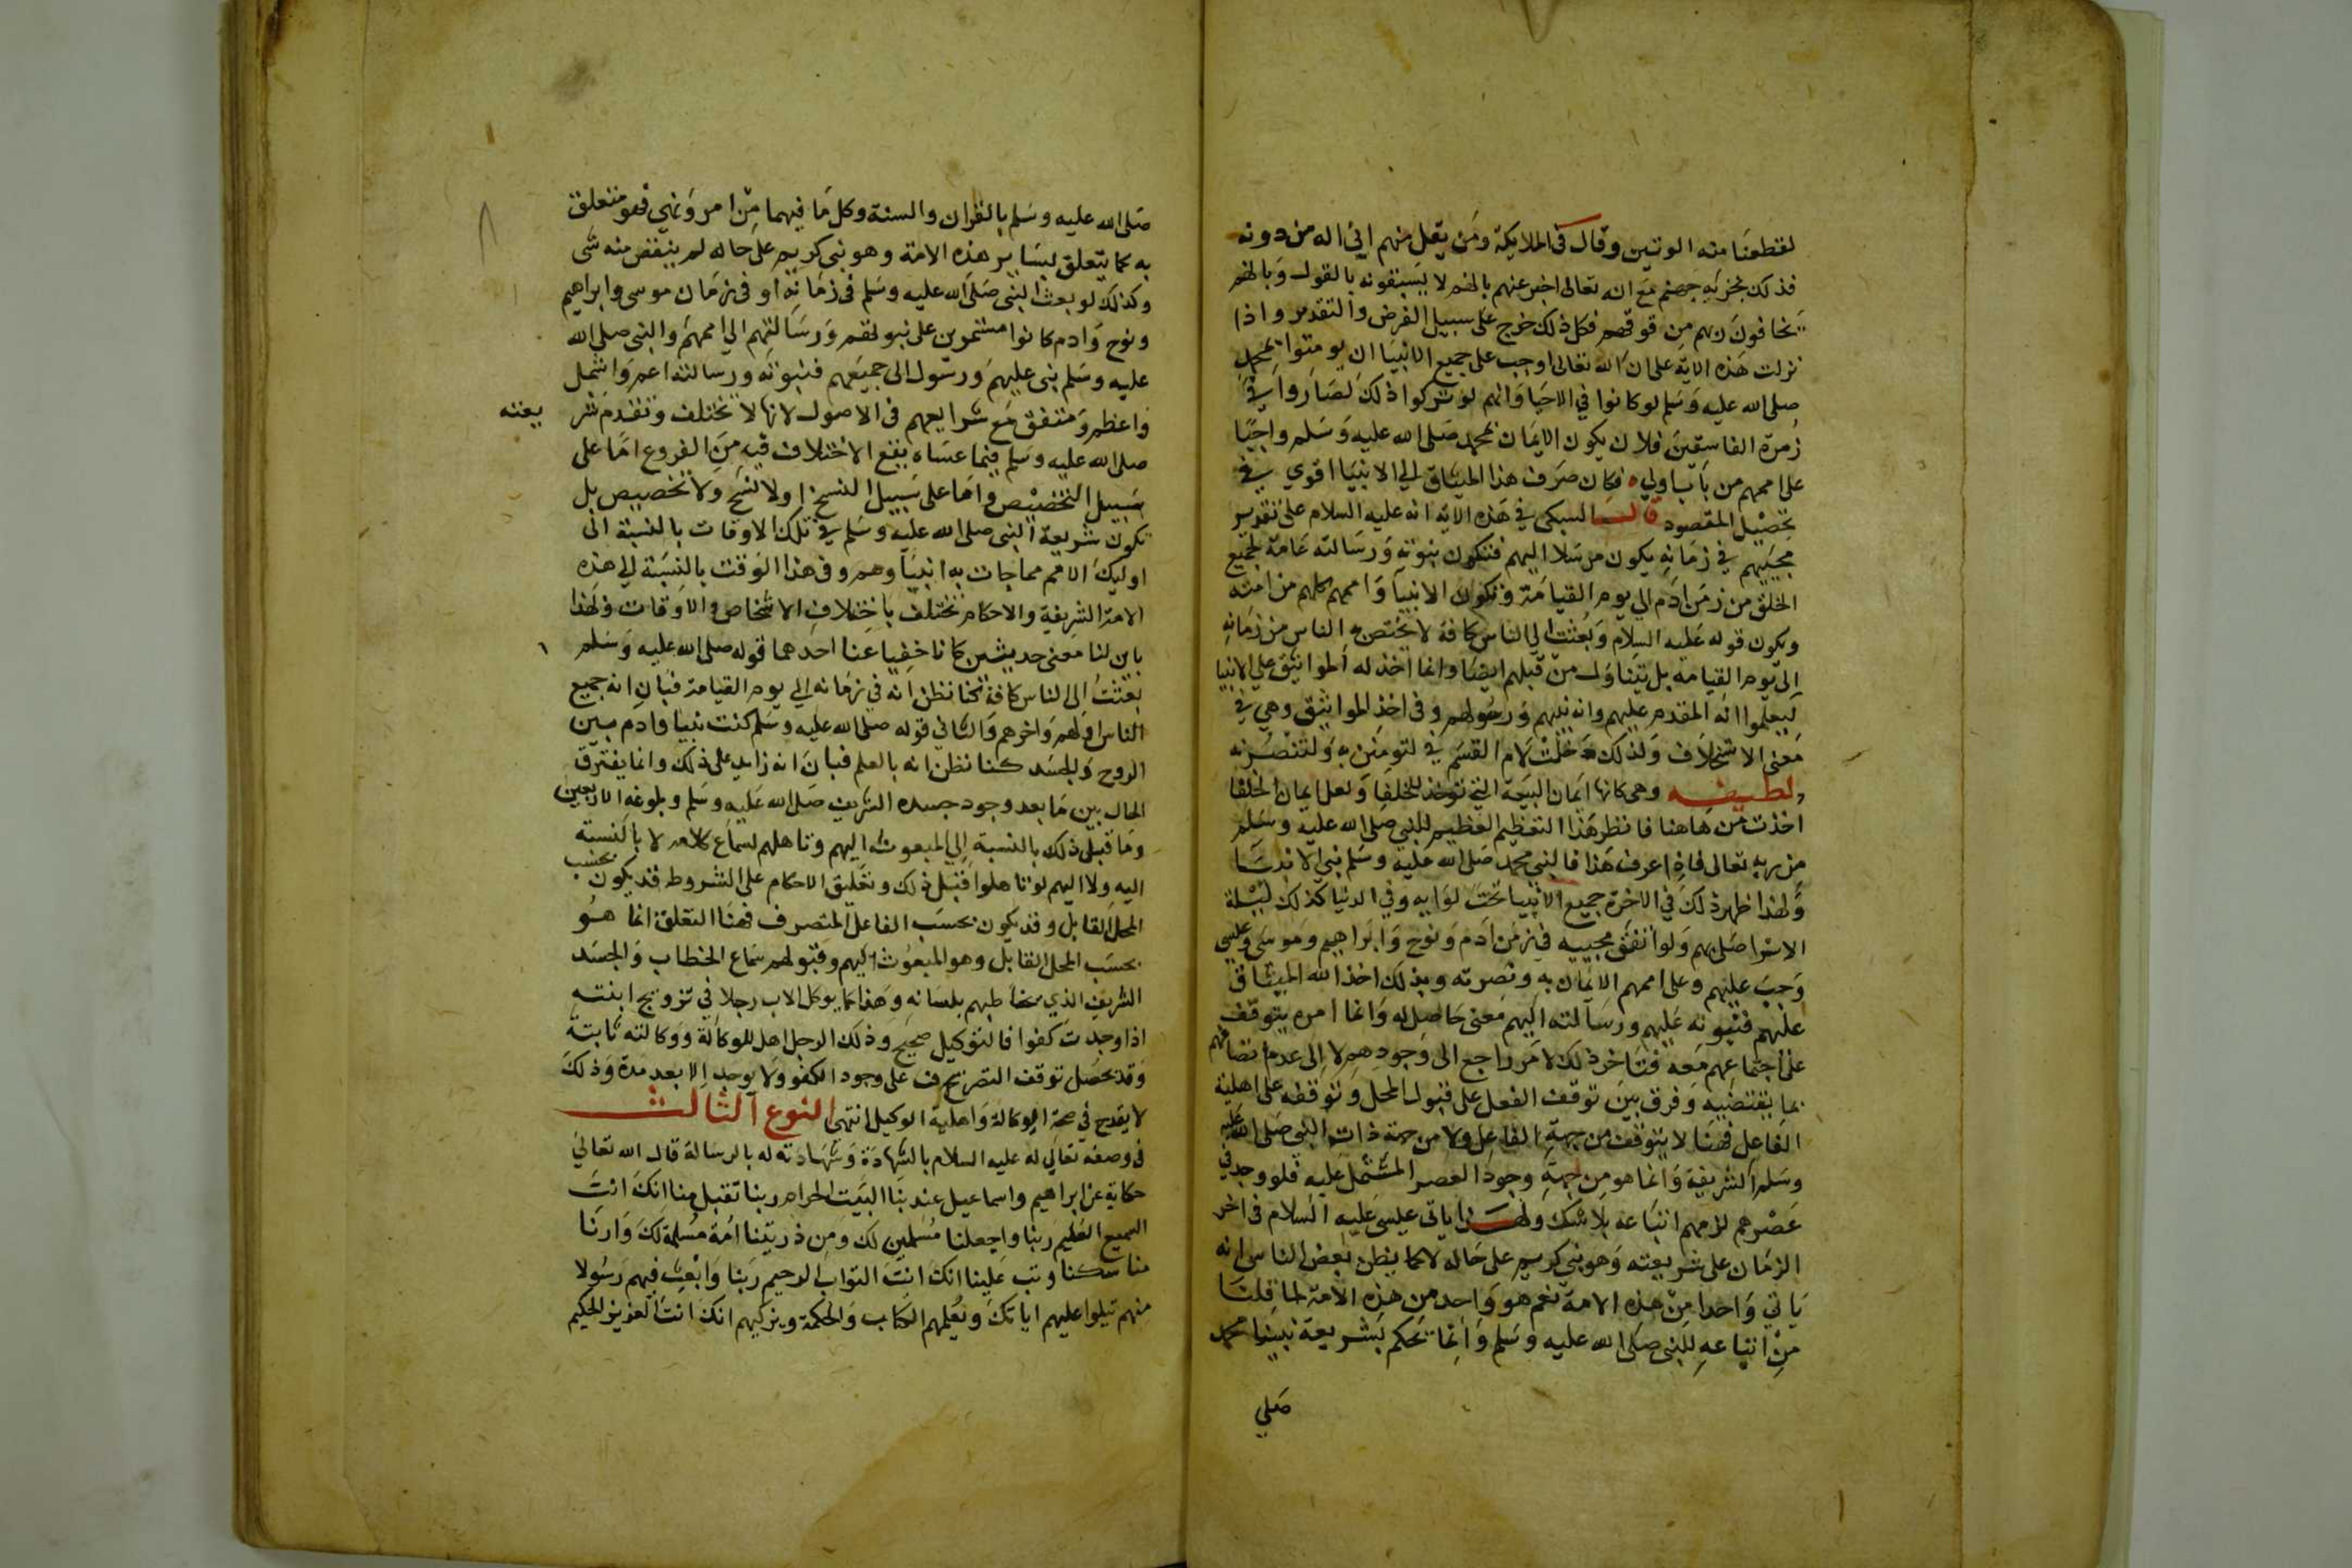 لقطعنا منه الوتين وقال في الملايكة ومن يقل منهم اني اله من دونه
فذلك نجزيه جهنم مع انه تعالى اخبر عنهم بانهم لا يسبقونه بالقول وبانهم
يخافون ربهم من فوقهم فكل ذلك خرج على سبيل الفرض والتقدير واذا
نزلت هذه الاية على ان الله تعالى اوجب على جميع الانبيا ان يومنوا بمحمد
صلى الله عليه وسلم لو كانوا في الاحيا وانهم لو تركوا ذلك لصاروا في
زمرة الفاسقين فلان يكون الايمان بمحمد صلى الله عليه وسلم واجبا
على اممهم من باب اولى فكان صرف هذا الميثاق الي الانبيا اقوي في
تحصيل المقصود قال السبكي في هذه الاية انه عليه السلام على تقدير
مجيئهم في زمانه يكون مرسلا اليهم فتكون نبوته ورسالته عامة لجميع
الخلق من زمن ادم الي يوم القيامة وتكون الانبيا واممهم كلهم من امته
ويكون قوله عليه السلام وبعثت الي الناس كافة لا يختص به الناس من زمانه
الى يوم القيامه بل يتناول من قبلهم ايضا وانما اخذ له المواثيق على الانبيا
ليعلموا انه المقدم عليهم وانه نبيهم ورسولهم وفي اخذ المواثيق وهي في
معنى الاستخلاف ولذلك دخلت لام القسم في لتومنن به ولتنصرنه
لطيفه وهي كانها ايمان البيعة التي توخذ للخلفا ولعل ايمان الخلفا
اخذت من هاهنا فانظر هذا التعظيم العظيم للنبي صلى الله عليه وسلم
من ربه تعالى فاذا عرف هذا فالنبي محمد صلى الله عليه وسلم نبي الانبيا
ولهذا ظهر ذلك في الاخرة جميع الانبيا تحت لوايه وفي الدنيا كذلك ليلة
الاسرا صلى بهم ولو اتفق مجيبه في زمن ادم ونوح وابراهيم وموسى وعيسى
وجب عليهم وعلى اممهم الايمان به ونصرته وبذلك اخذ الله الميثاق
عليهم فنبوته عليهم ورسالته اليهم معنى حاصل له وانما امره يتوقف
على اجتماعهم معه فتاخر ذلك لامر راجع الى وجودهم لا الى عدم اتصافهم
بما يقتضيه وفرق بين توقف الفعل على قبول المحل وتوقفه على اهلية
الفاعل فهنا لا يتوقف من جهة الفاعل ولا من جهة ذات النبي صلى الله عليه
وسلم الشريفة وانما هو من جهة وجود العصر المشتمل عليه فلو وجد في
عصرهم لزمهم اتباعه بلا شك ولهذا ياتي عيسى عليه السلام في اخر
الزمان على شريعته وهو نبي كريم على حاله لا كما يظن بعض الناس انه
ياتي واحدا من هذه الامة نعم هو واحد من هذه الامة لما قلنا
من اتباعه للنبي صلى الله عليه وسلم وانما يحكم بشريعة نبينا محمد
صلي
صلى الله عليه وسلم بالقران والسنة وكل ما فيهما من امر ونهي فهو متعلق
به كما يتعلق بساير هذه الامة وهو نبي كريم على حاله لم ينقض منه شي
وكذلك لو بعث النبي صلى الله عليه وسلم في زمانه او في زمان موسى وابراهيم
ونوح وادم كانوا مستمرين على نبوتهم ورسالتهم الي اممهم والنبي صلى الله
عليه وسلم نبى عليهم ورسول الى جميعهم فنبوته ورسالته اعم واشمل
واعظم ومتفق مع شرايعهم في الاصول لانها لا تختلف وتقدم شر يعته
صلى الله عليه وسلم فيما عساه يقع الاختلاف فيه من الفروع اما على
سبيل التخصيص واما على سبيل النسخ اولا نسخ ولا تخصيص بل
تكون شريعة النبي صلى الله عليه وسلم في تلك الاوقات بالنسبة الى
اوليك الامم مما جات به انبياوهم وفي هذا الوقت بالنسبة الي هذه
الامة الشريفة والاحكام تختلف باختلاف الاشخاص والاوقات ولهذا
بان لنا معنى حديثين كانا خفيا عنا احدهما قوله صلى الله عليه وسلم
بعثت الى الناس كافة كنا نظن انه في زمانه الي يوم القيامة فبان انه جميع
الناس اولهم واخرهم والثاني قوله صلى الله عليه وسلم كنت نبيا وادم بين
الروح والجسد كنا نظن انه بالعلم فبان انه زايد على ذلك وانما يفترق
الحال بين ما بعد وجود جسده الشريف صلى الله عليه وسلم وبلوغه الاربعين
وما قبل ذلك بالنسبة الي المبعوث اليهم وتاهلهم لسماع كلامه لا بالنسبة
اليه ولا اليهم لو تاهلوا قبل ذلك وتعليق الاحكام على الشروط قد يكون بحسب
المحل القابل وقد يكون بحسب الفاعل المتصرف فهنا التعلق انما هو
بحسب المحل القابل وهو المبعوث اليهم وقبولهم سماع الخطاب والجسد
الشريف الذي يخاطبهم بلسانه وهذا كما يوكل الاب رجلا في تزويج ابنته
اذا وجدت كفوا فالتوكيل صحيح وذلك الرجل اهل للوكالة ووكالته ثابتة
وقد يحصل توقف التصرف على وجود الكفو ولا يوجد الا بعد مدة وذلك
لا يقدح في صحة الوكالة واهلية الوكيل انتهى النوع الثالث
في وصفه تعالي له عليه السلام بالشهادة وشهادته له بالرسالة قال الله تعالي
حكاية عن ابراهيم واسماعيل عند بنا البيت الحرام ربنا تقبل منا انك انت
السميع العليم ربنا واجعلنا مسلمين لك ومن ذريتنا امة مسلمة لك وارنا
مناسكنا وتب علينا انك انت التواب الرحيم ربنا وابعث فيهم رسولا
منهم يتلوا عليهم اياتك ويعلمهم الكتاب والحكمة ويزكيهم انك انت العزيز الحكيم